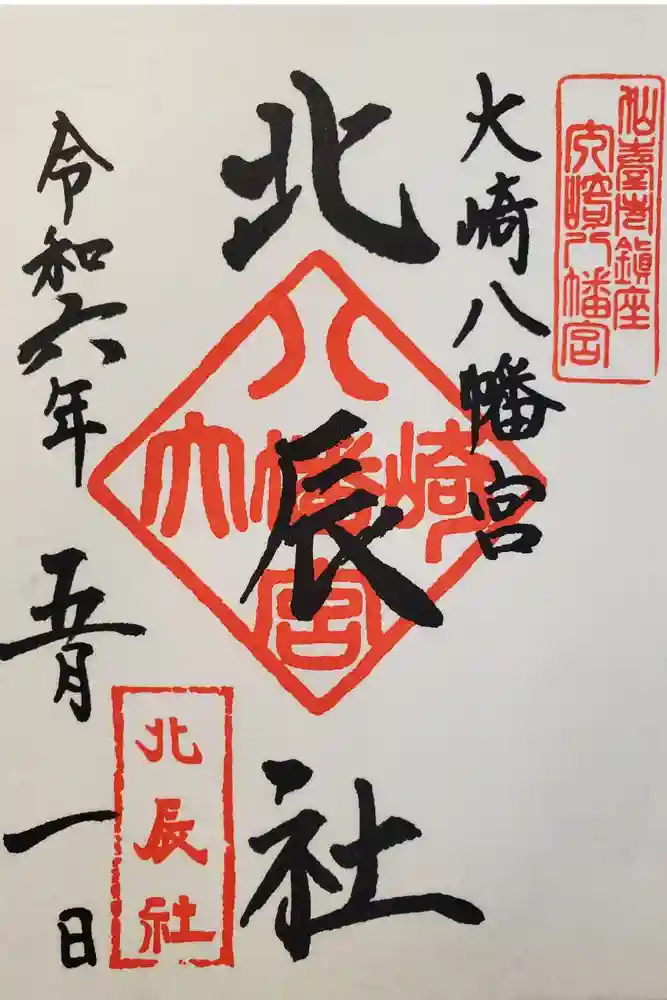 仙臺市鎮座
大崎八幡宮
大崎八幡宮
北辰社
八
大幡崎
宮
北辰社
令和六年五月一日